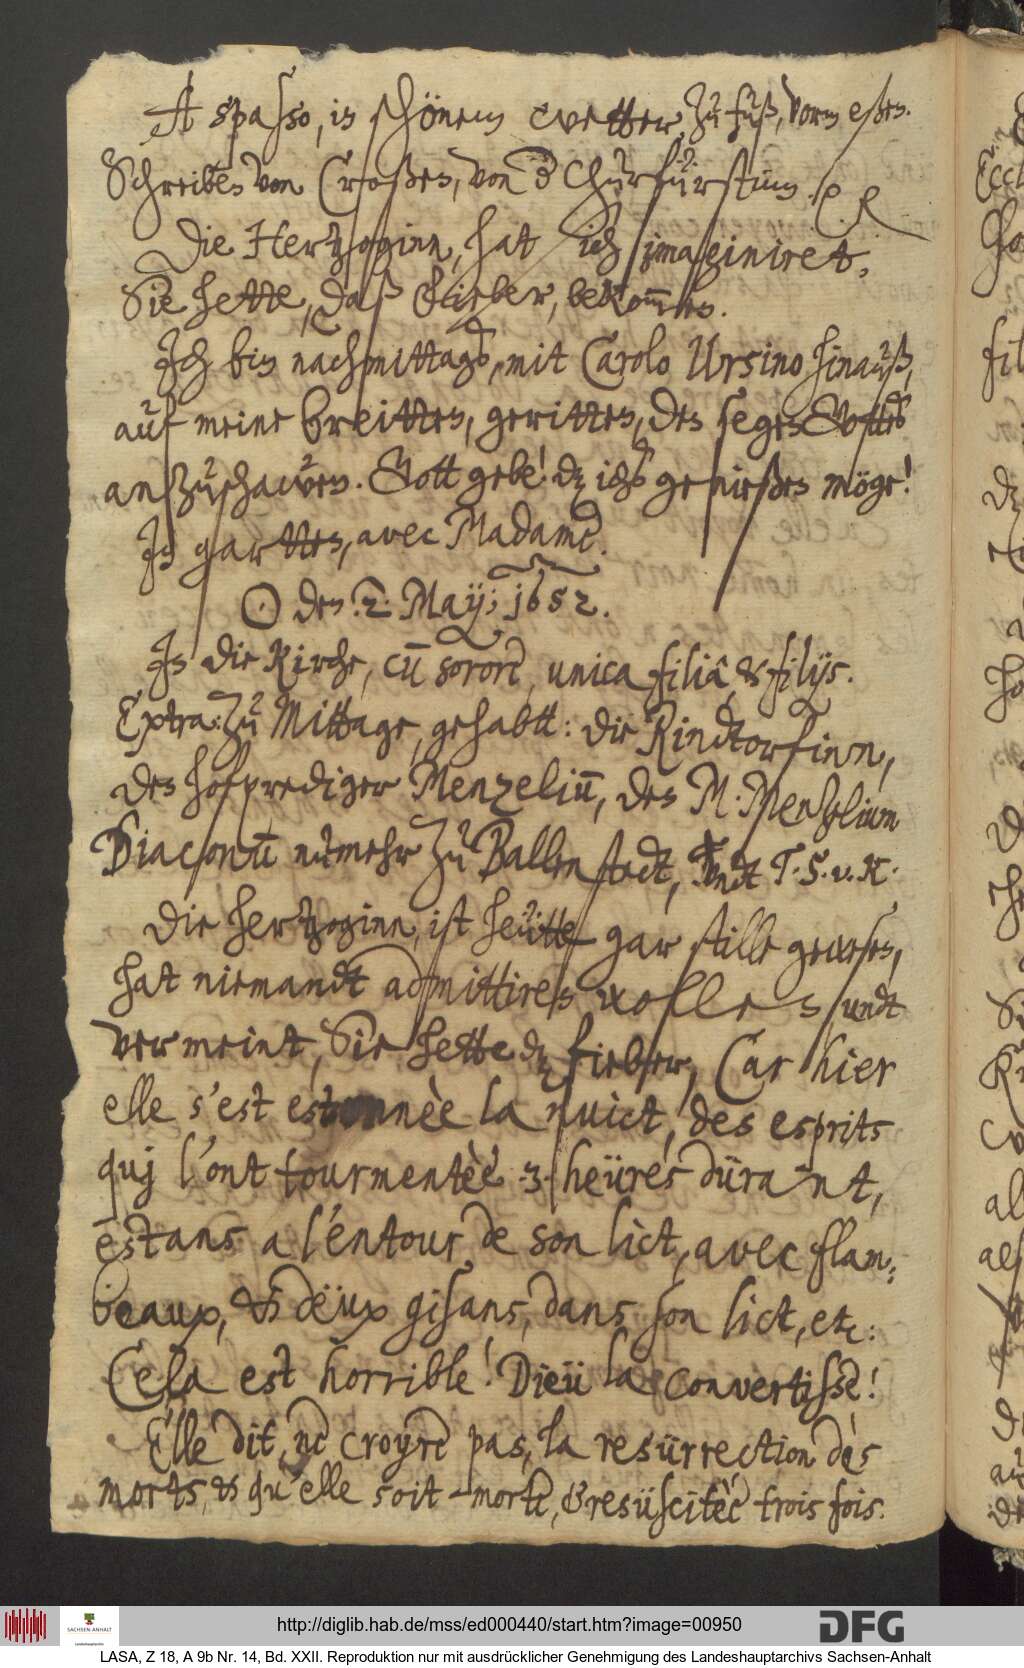 A spasso, in schönem wetter, zu fuß, vorm eßen.
Schreiben von Croßen, von der Churfürstinn. p. p.
Die Hertzoginn, hat sich imaginiret,
Sie hette, daß fieber, bekom̅en.
Ich bin nachmittagß, mit Carolo Ursino hinauß,
auf meine breitten, geritten, den segen Gottes
anzuschawen. Gott gebe! dz ichs genießen möge!
In gartten, avec Madame.
⊙ den 2. May; 1652.
In die Kirche, cu̅ sorore, unica filiâ, & filijs.
Extra: zu Mittage, gehabtt: die Rindtorfinn,
den hofprediger Menzeliu̅, den M. Menzelium
Diaconu̅ nu̅mehr zu Ballenstedt, undt T. S. v. K.
Die hertzoginn, ist heütte gar stille gewesen,
hat niemandt admittiren wollen, undt
vermeint, Sie hette dz fieber, Car hier
elle s'est estonnèe la nuict, des esprits
quj l'ont tourmentèe .3. heüres dürant,
estans a l'entour de son lict, avec flam:
beaux, & deüx gisans, dans son lict, etc:
Cela est horrible! Dieü la convertisse!
Elle dit, ne croyre pas, la resürrection des
morts, & qu'elle soit morte, & resüscitèe trois fois.
http://diglib.hab.de/mss/ed000440/start.htm?image=00950
DFG
SACHSEN-ANHALT
LASA, Z 18, A 9b Nr. 14, Bd. XXII. Reproduktion nur mit ausdrücklicher Genehmigung des Landeshauptarchivs Sachsen-Anhalt